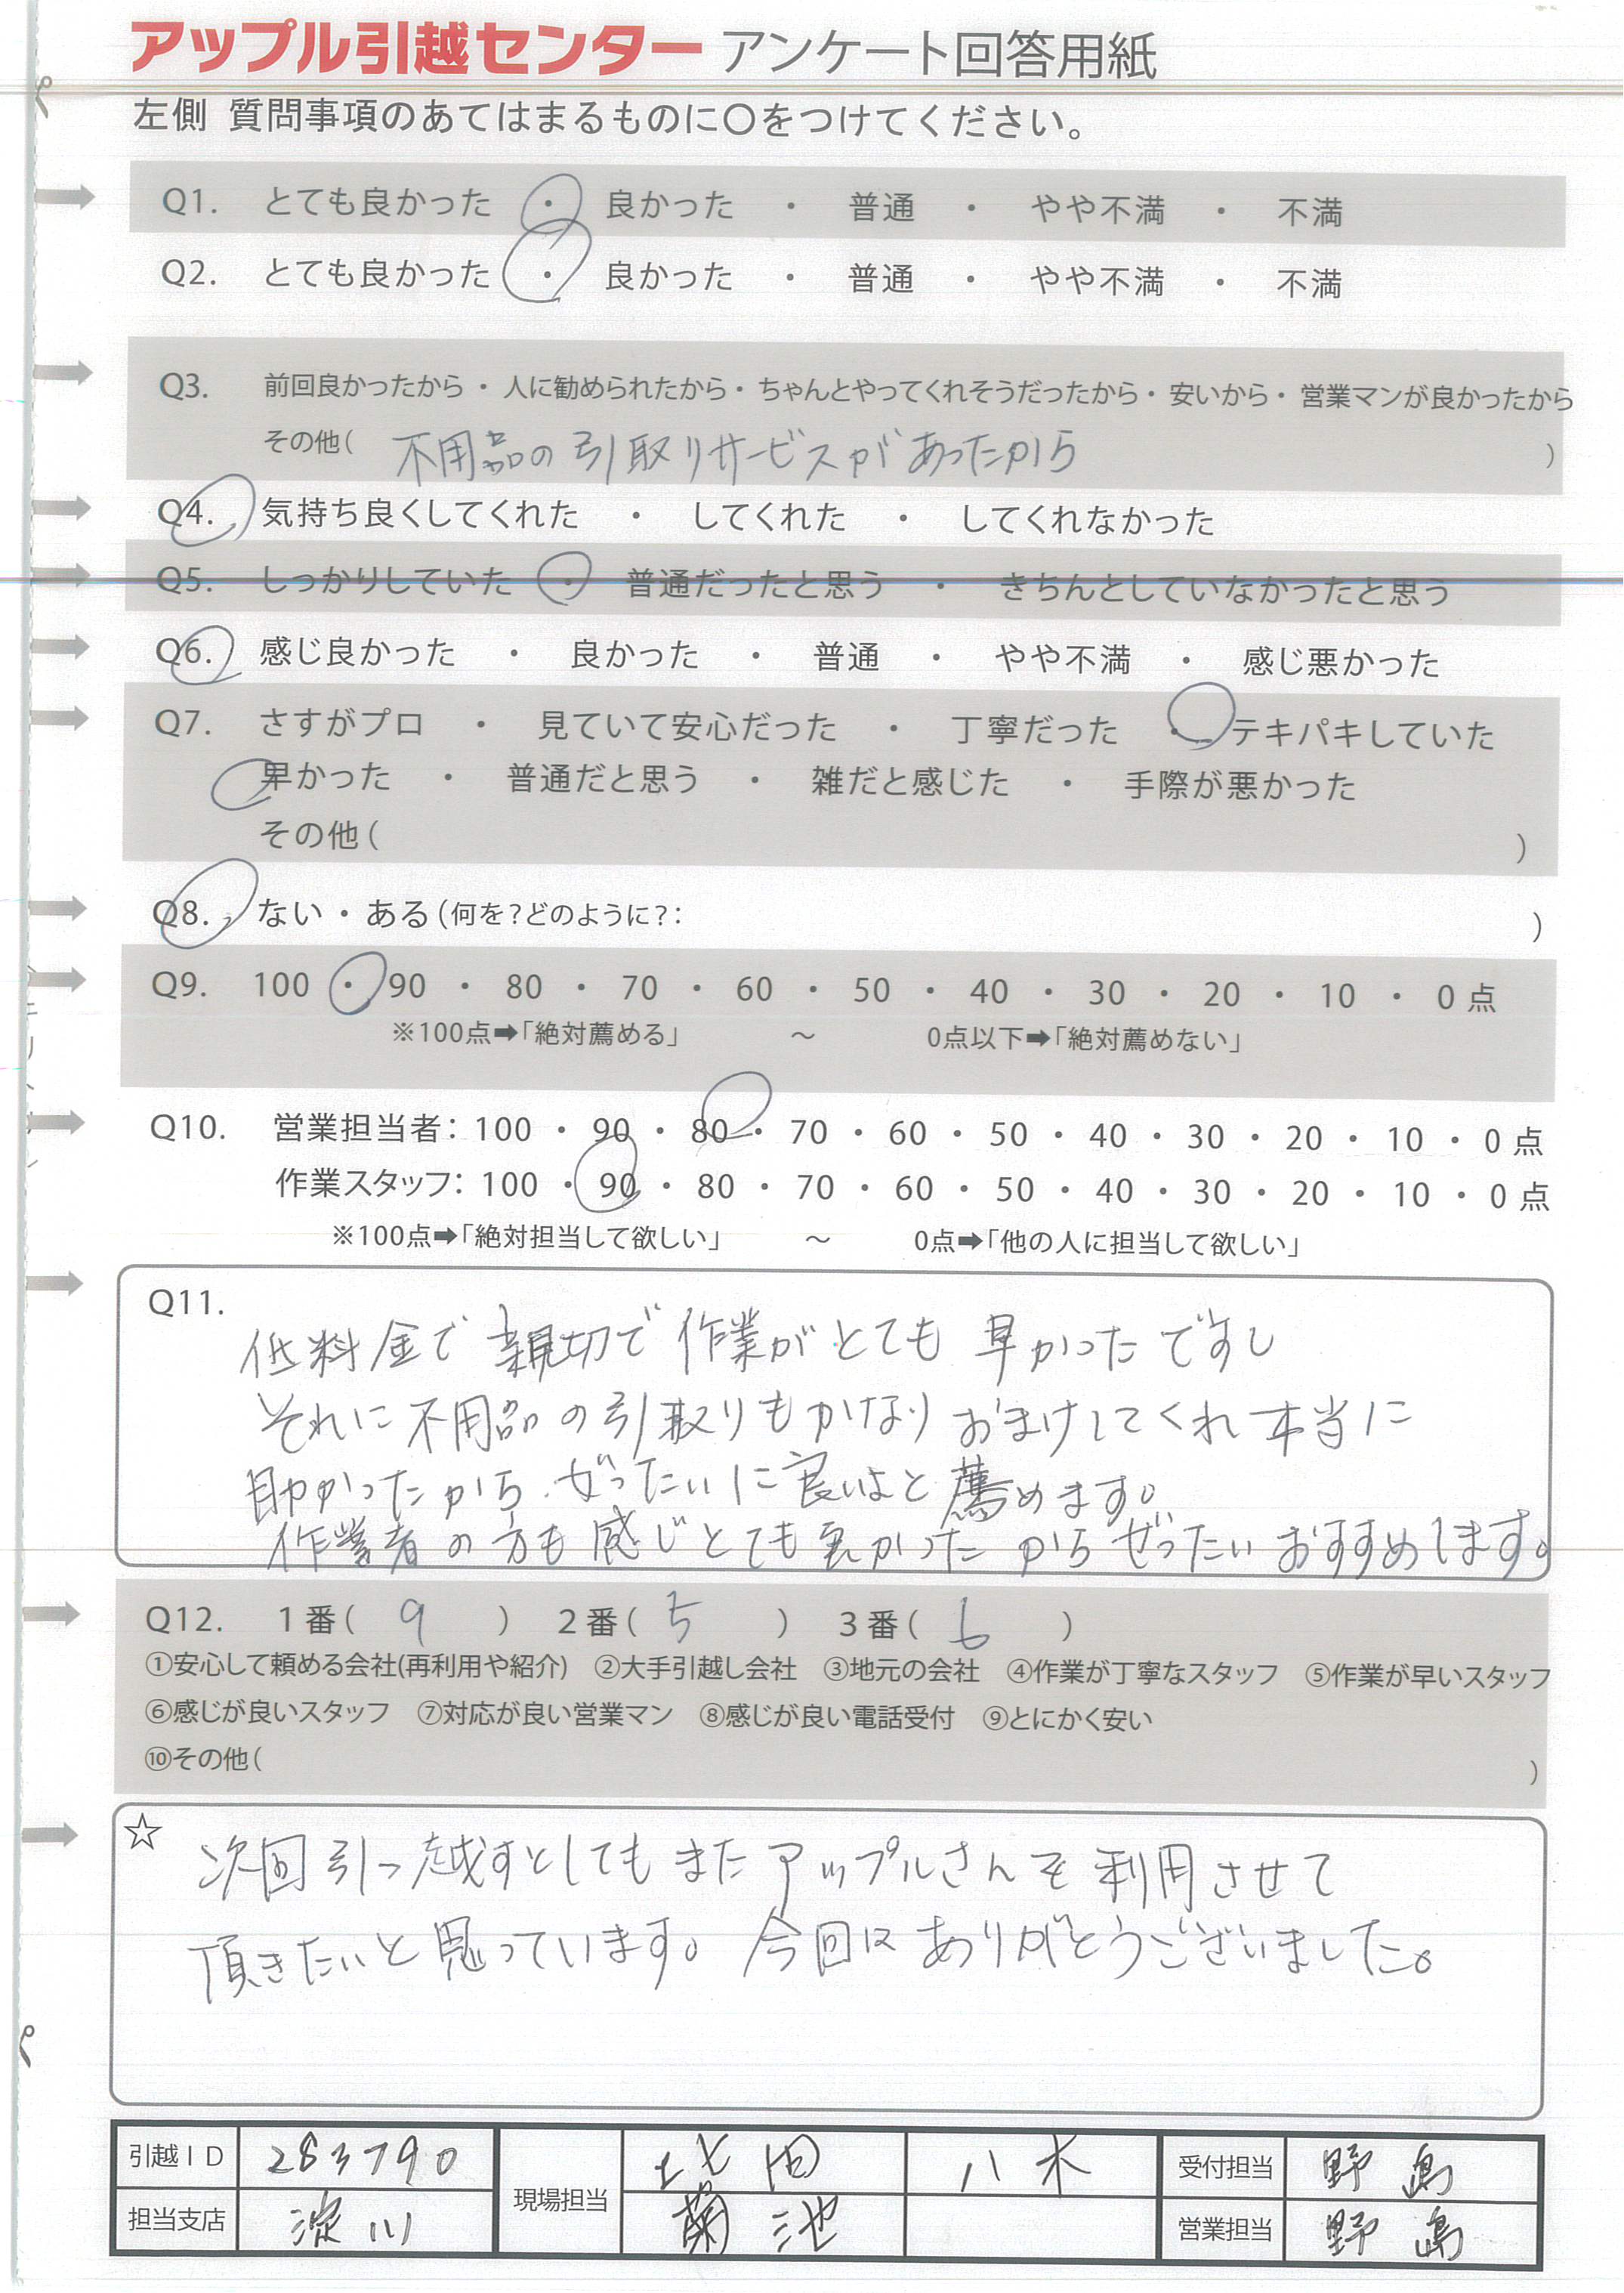 アップル引越センター アンケート回答用紙
左側 質問事項のあてはまるものに〇をつけてください。
Q1. とても良かった ・ 良かった ・ 普通 ・ やや不満 ・ 不満
Q2. とても良かった ・ 良かった ・ 普通 ・ やや不満 ・ 不満
Q3. 前回良かったから ・ 人に勧められたから ・ ちゃんとやってくれそうだったから ・ 安いから ・ 営業マンが良かったから
その他( 不用品の引取りサービスがあったから )
Q4. 気持ち良くしてくれた ・ してくれた ・ してくれなかった
Q5. しっかりしていた ・ 普通だったと思う ・ きちんとしていなかったと思う
Q6. 感じ良かった ・ 良かった ・ 普通 ・ やや不満 ・ 感じ悪かった
Q7. さすがプロ ・ 見ていて安心だった ・ 丁寧だった ・ テキパキしていた
早かった ・ 普通だと思う ・ 雑だと感じた ・ 手際が悪かった
その他( )
Q8. ない ・ ある(何を?どのように?: )
Q9. 100 ・ 90 ・ 80 ・ 70 ・ 60 ・ 50 ・ 40 ・ 30 ・ 20 ・ 10 ・ 0 点
※100点➡「絶対薦める」 ～ 0点以下➡「絶対薦めない」
Q10. 営業担当者: 100 ・ 90 ・ 80 ・ 70 ・ 60 ・ 50 ・ 40 ・ 30 ・ 20 ・ 10 ・ 0 点
作業スタッフ: 100 ・ 90 ・ 80 ・ 70 ・ 60 ・ 50 ・ 40 ・ 30 ・ 20 ・ 10 ・ 0 点
※100点➡「絶対担当して欲しい」 ～ 0点➡「他の人に担当して欲しい」
Q11.
低料金で親切で作業がとても早かったですし
それに不用品の引取りもかなりおまけしてくれ本当に
助かったから、ぜったいに良いよと薦めます。
作業者の方も感じとても良かったからぜったいおすすめします。
Q12. 1番( 9 ) 2番( 5 ) 3番( 6 )
①安心して頼める会社(再利用や紹介) ②大手引越し会社 ③地元の会社 ④作業が丁寧なスタッフ ⑤作業が早いスタッフ
⑥感じが良いスタッフ ⑦対応が良い営業マン ⑧感じが良い電話受付 ⑨とにかく安い
⑩その他( )
☆ 次回引っ越すとしてもまたアップルさんを利用させて
頂きたいと思っています。今回はありがとうございました。
引越ID 283790 現場担当 八木 受付担当 野島
担当支店 淀川 菊池 営業担当 野島